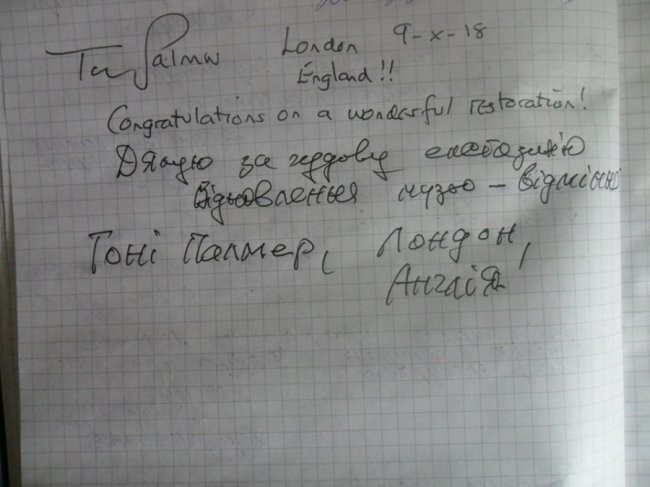 Tony Palmer London 9-X-18
England!!
Congratulations on a wonderful restoration!
Дякую за чудову
Відновлення музею - відмінно
Тоні Палмер, Лондон,
Англія!